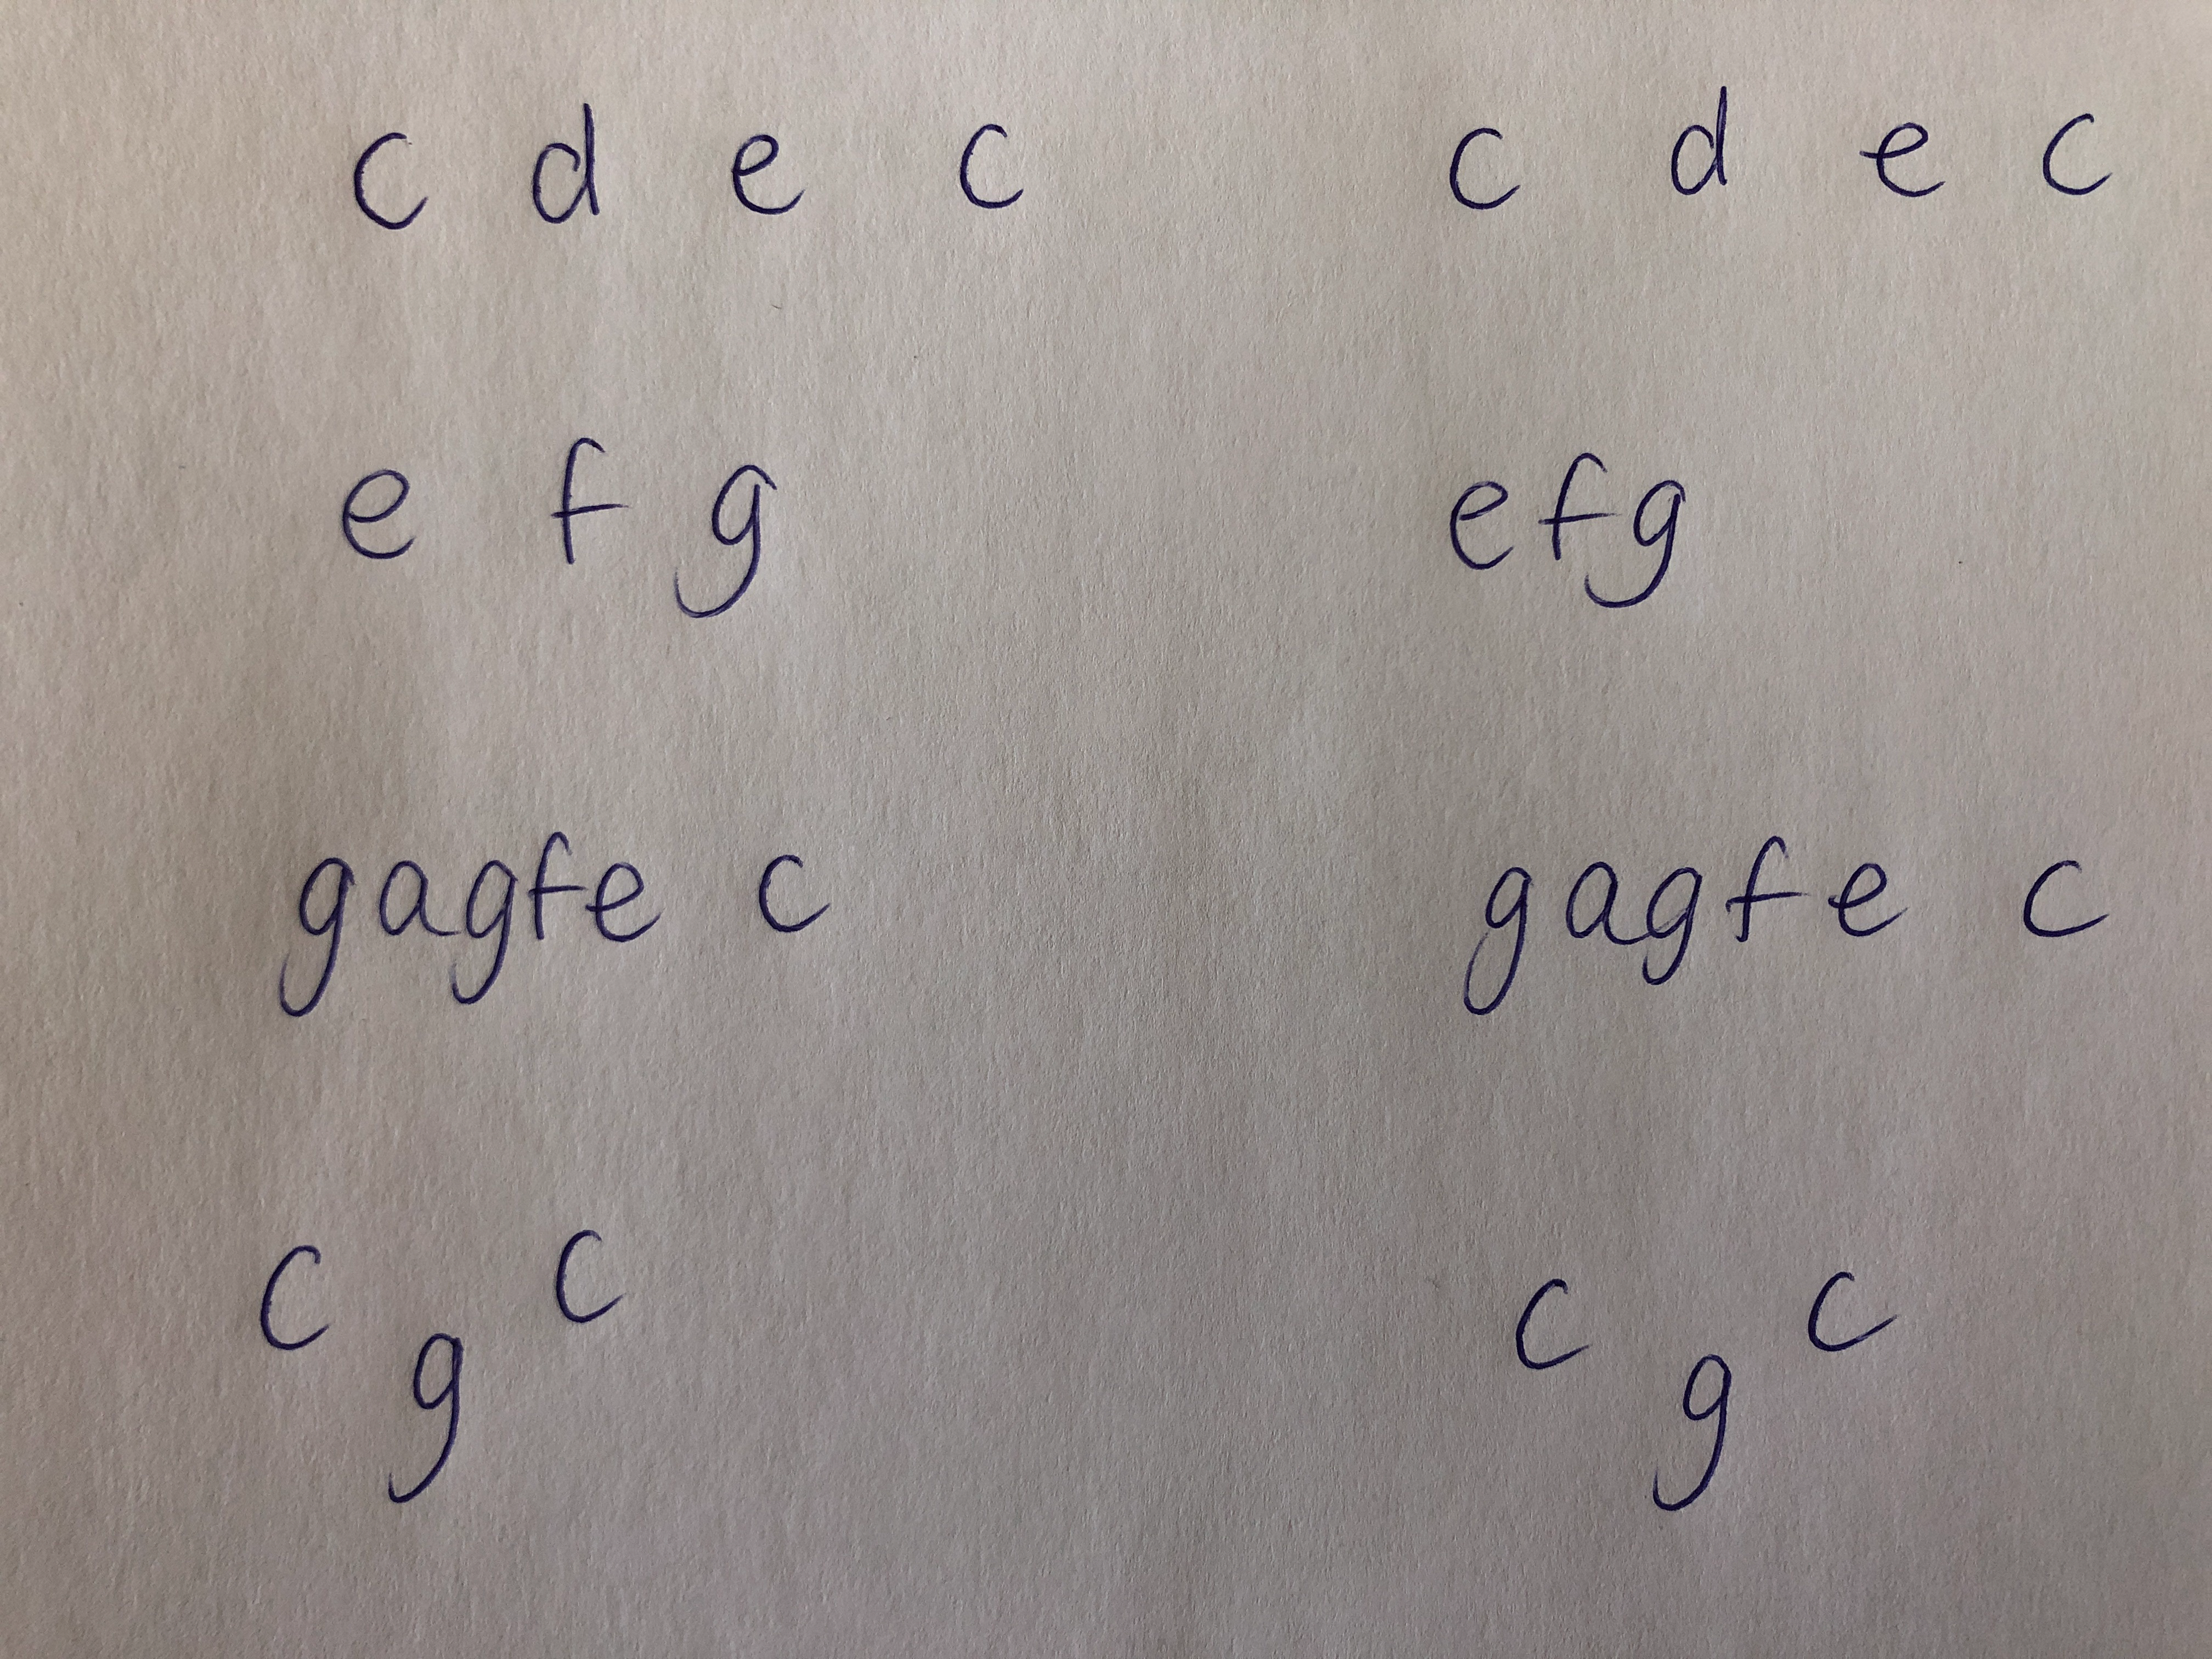 c d e c c d e c
e f g e f g
g a g f e c g a g f e c
c g c c g c